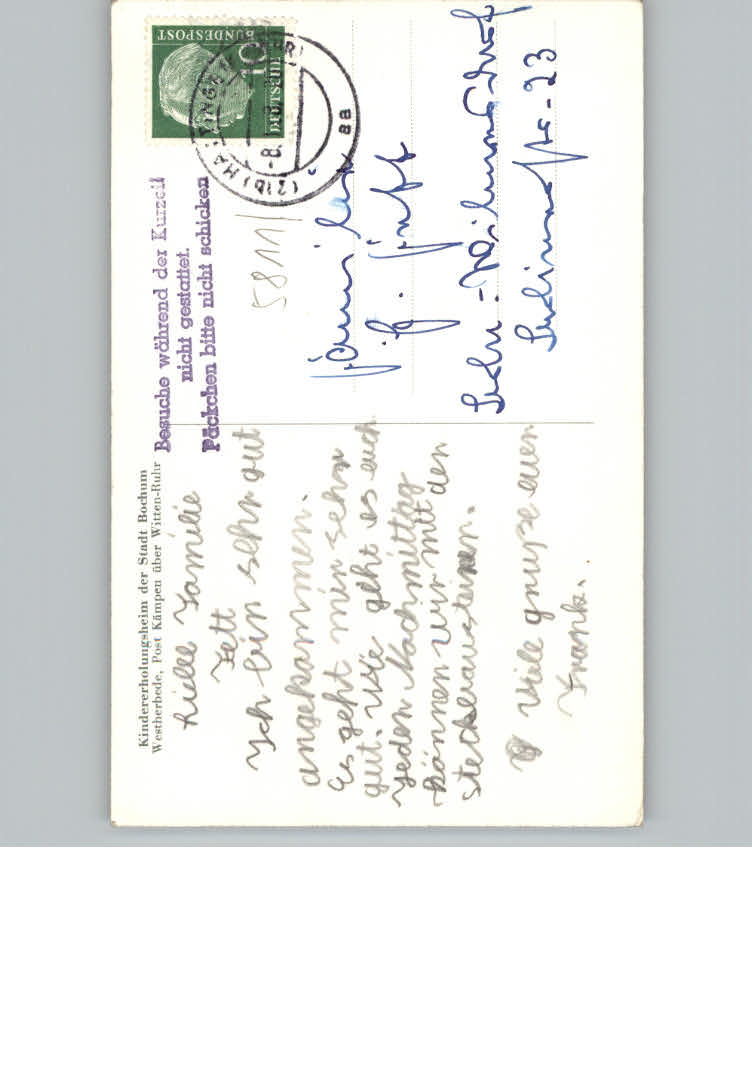 Kindererholungsheim der Stadt Bochum
Westherbede, Post Kämpen über Witten-Ruhr
Liebe Familie
Jett
Ich bin sehr gut
angekommen.
Es geht mir sehr
gut. Wie geht es euch
Jeden Nachmittag
können wir mit den
Viele grüße euer
Frank.
Besuche während der Kurzeit
nicht gestattet.
Päckchen bitte nicht schicken
DEUTSCHE
BUNDESPOST
10
(21b) HATTINGEN (RUHR)
-8.
aa
5811
Familie
23